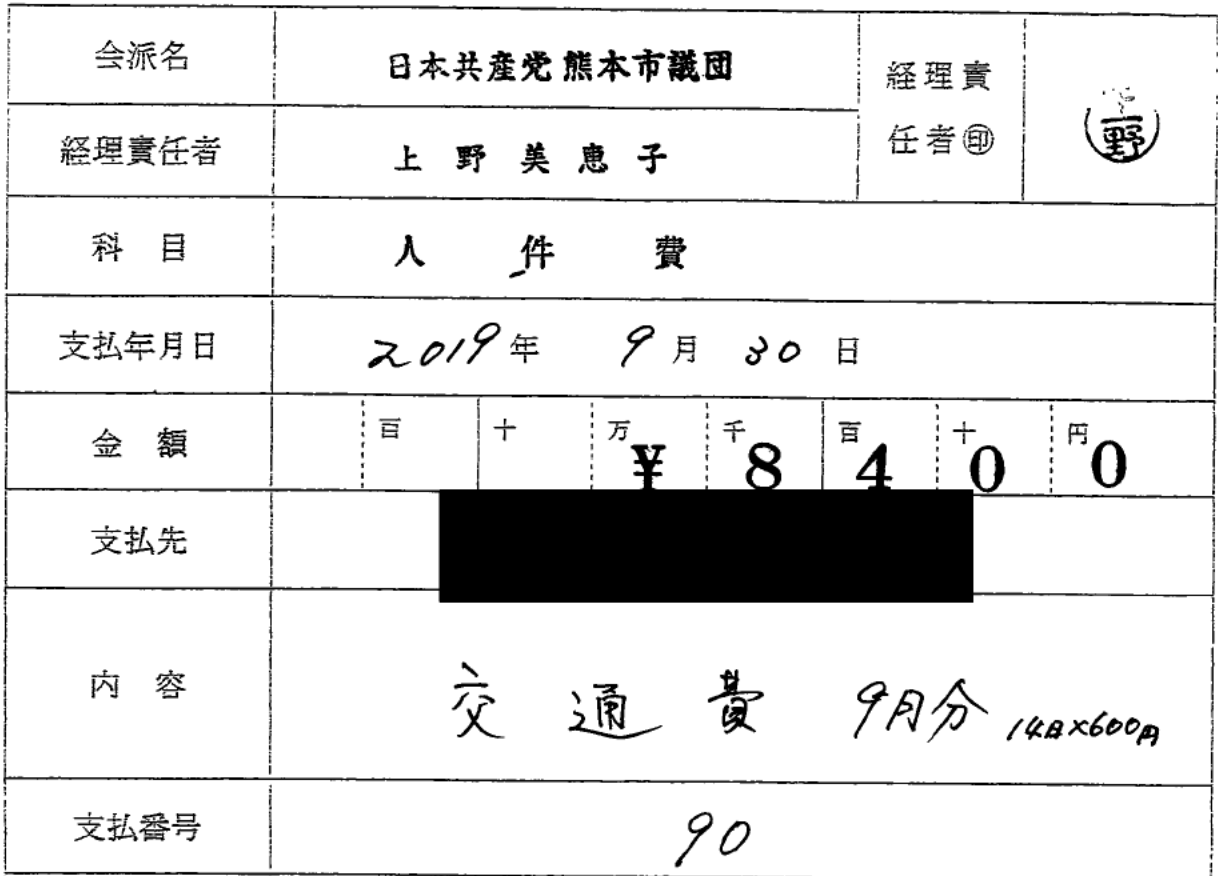 会派名 日本共産党熊本市議団 経理責任者㊞ 野
経理責任者 上野美恵子
科目 人件費
支払年月日 2019年 9月 30日
金額 百 十 万 千 百 十 円 ¥8400
支払先
内容 交通費 9月分 14日×600円
支払番号 90